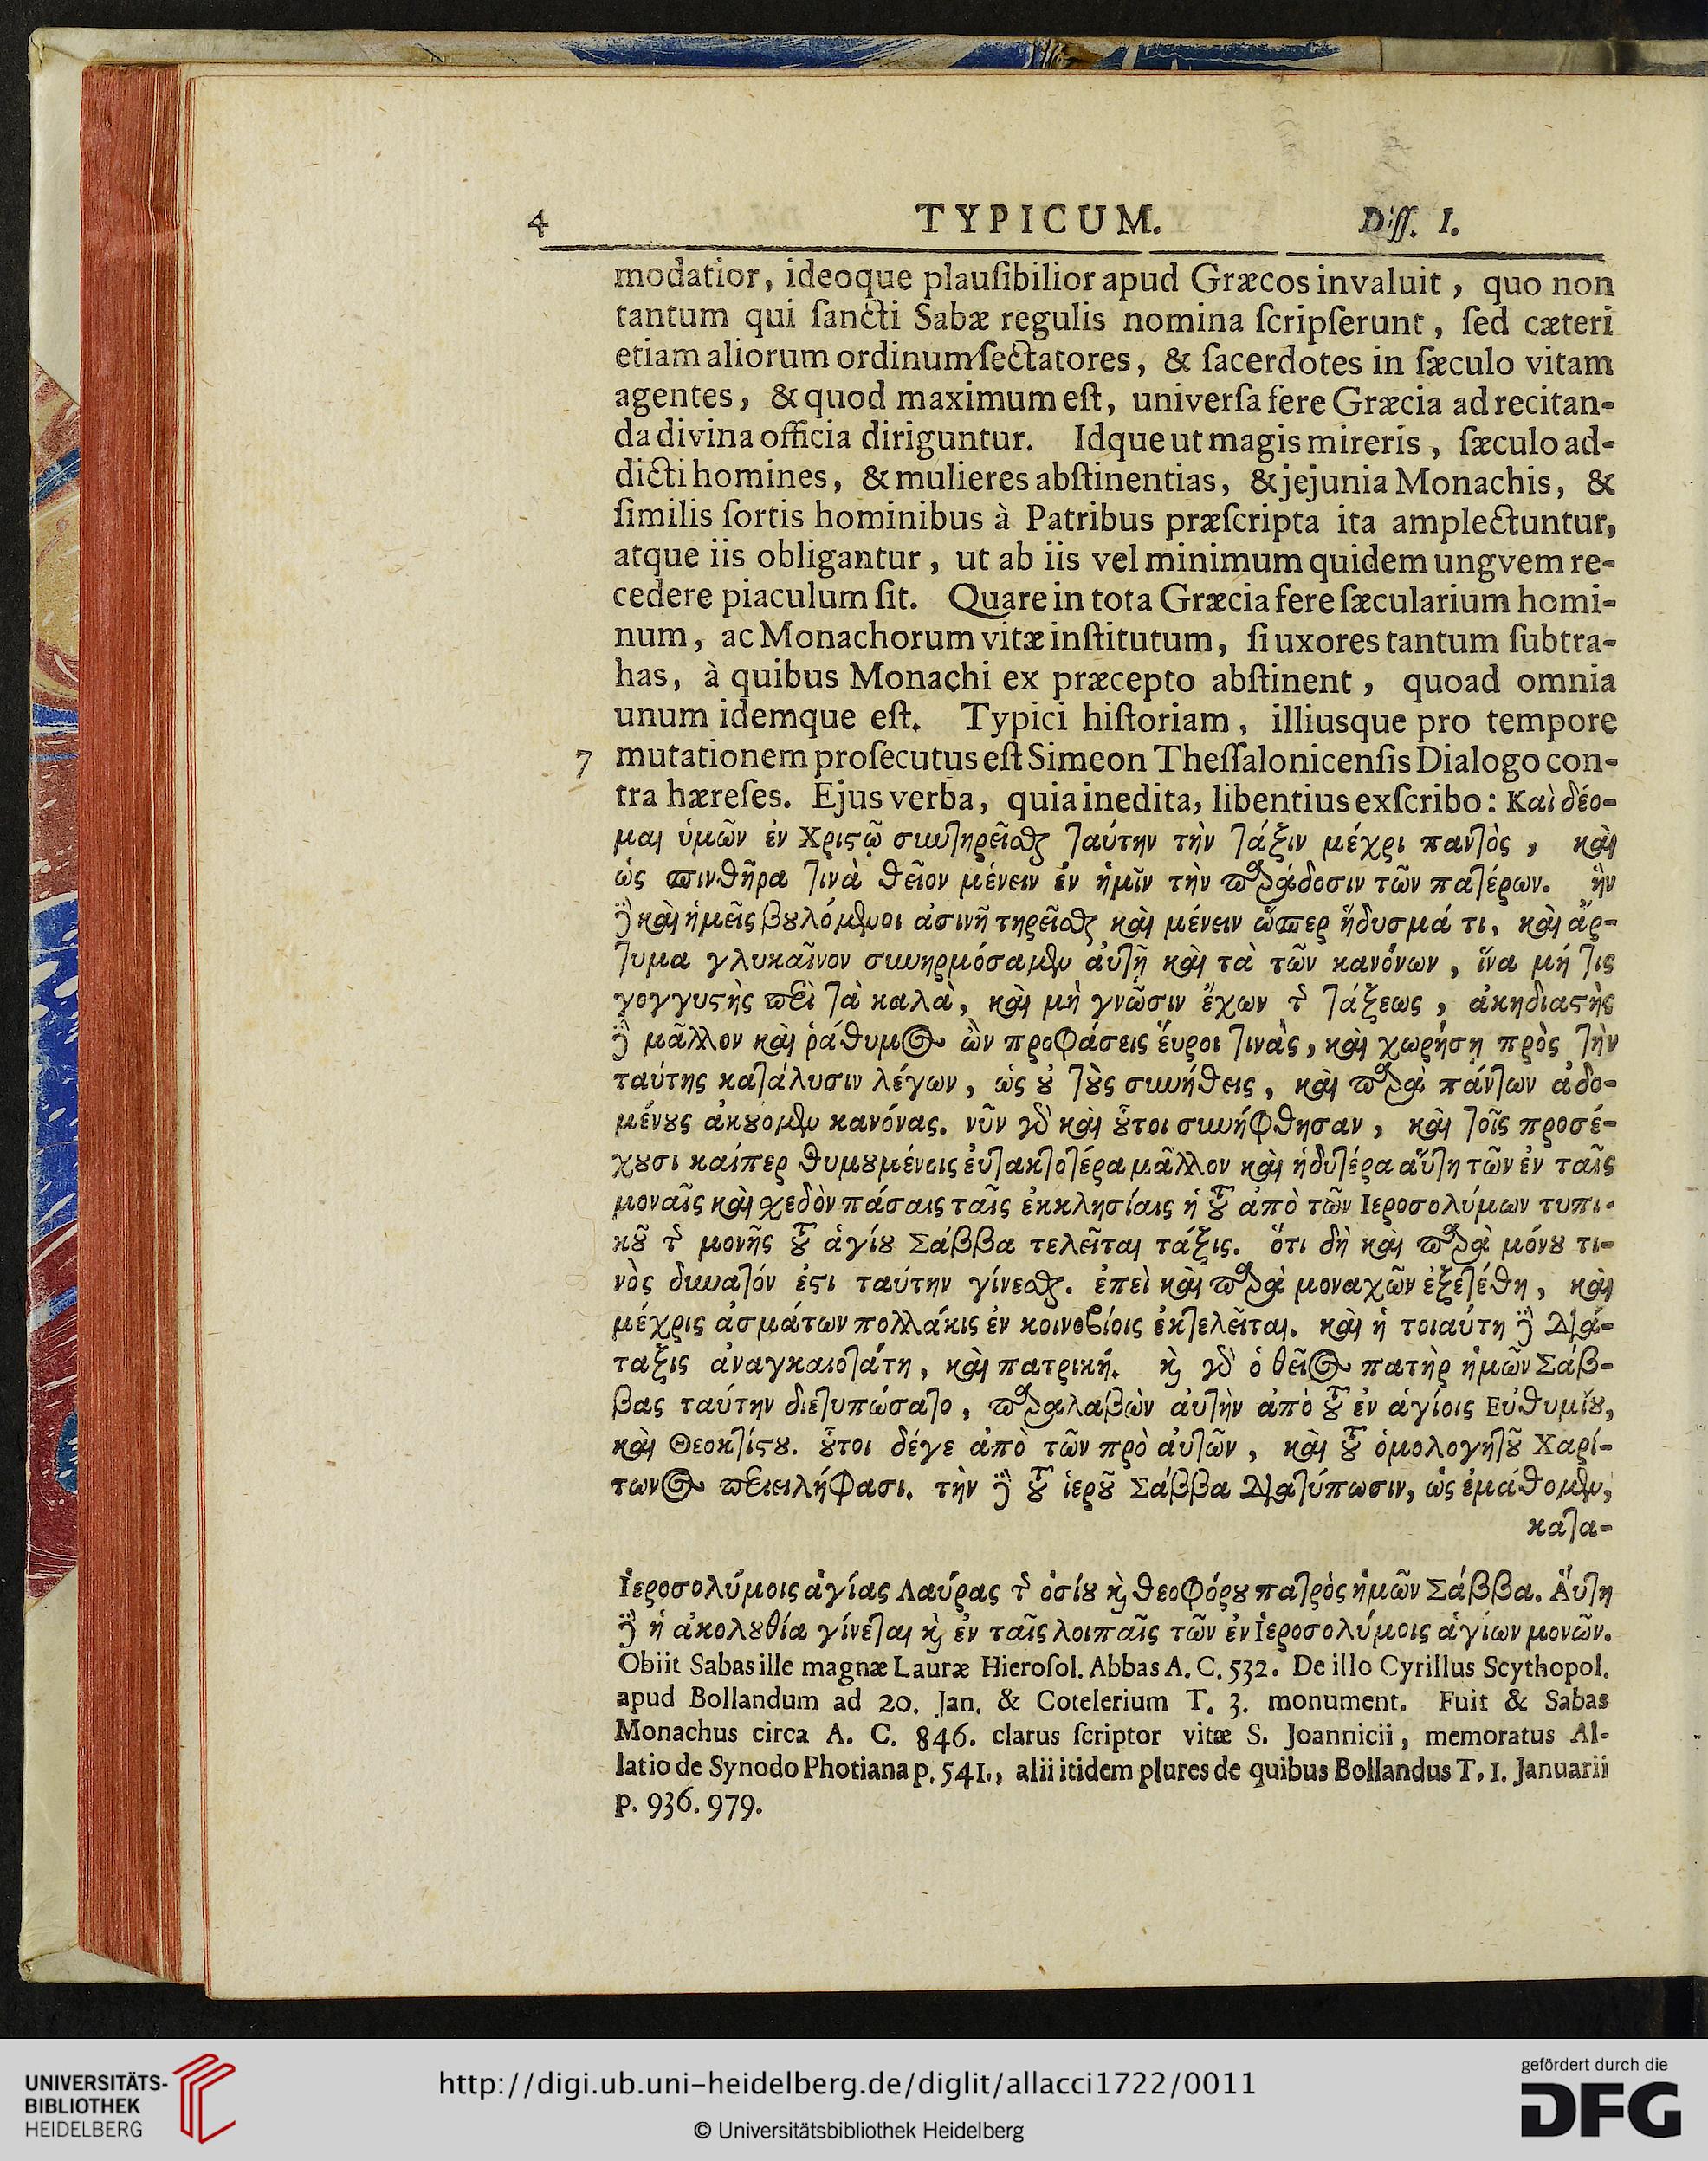 4 TYPICUM. Diſſ. I.
modatior, ideoque plauſibilior apud Græcos invaluit, quo non
tantum qui ſancti Sabæ regulis nomina ſcripſerunt, ſed cæteri
etiam aliorum ordinum ſectatores, & ſacerdotes in ſæculo vitam
agentes, & quod maximum eſt, univerſa fere Græcia ad recitan-
da divina officia diriguntur. Idque ut magis mireris, ſæculo ad-
dicti homines, & mulieres abſtinentias, & jejunia Monachis, &
ſimilis ſortis hominibus à Patribus præſcripta ita amplectuntur,
atque iis obligantur, ut ab iis vel minimum quidem ungvem re-
cedere piaculum ſit. Quare in tota Græcia fere ſæcularium homi-
num, ac Monachorum vitæ inſtitutum, ſi uxores tantum ſubtra-
has, à quibus Monachi ex præcepto abſtinent, quoad omnia
unum idemque eſt. Typici hiſtoriam, illiusque pro tempore
7 mutationem proſecutus eſt Simeon Theſſalonicenſis Dialogo con-
tra hæreſes. Ejus verba, quia inedita, libentius exſcribo: Καὶ δέο-
μαι ὑμῶν ἐν Χριςῷ συντηρεῖσθαι ταύτην τὴν τάξιν μέχρι παντὸς, καὶ
ὡς σπινθῆρα τινὰ θεῖον μένειν ἐν ἡμῖν τὴν παράδοσιν τῶν πατέρων. ἣν
δὲ καὶ ἡμεῖς βουλόμενοι ἀσινῆ τηρεῖσθαι καὶ μένειν ὥσπερ ἥδυσμά τι, καὶ ἄρ-
τυμα γλυκαῖνον συνηρμόσαμεν αὐτῇ καὶ τὰ τῶν κανόνων, ἵνα μή τις
γογγυςὴς περὶ τὰ καλὰ, καὶ μὴ γνῶσιν ἔχων τῆς τάξεως, ἀκηδιαςὴς
δὲ μᾶλλον καὶ ῥάθυμος ὢν προφάσεις ἕυροι τινὰς, καὶ χωρήση πρὸς τὴν
ταύτης κατάλυσιν λέγων, ὡς οὐ τοὺς συνήθεις, καὶ παρὰ πάντων ἀδο-
μένους ἀκούομεν κανόνας. νῦν γὰρ καὶ οὗτοι συνήφθησαν, καὶ τοῖς προσέ-
χουσι καίπερ θυμουμένοις ἐυτακτοτέρα μᾶλλον καὶ ἡδυτέρα αὕτη τῶν ἐν ταῖς
μοναῖς καὶ σχεδὸν πάσαις ταῖς ἐκκλησίαις ἡ τοῦ ἀπὸ τῶν Ιεροσολύμων τυπι-
κοῦ τῆς μονῆς τοῦ ἁγίου Σάββα τελεῖται τάξις. ὅτι δὴ καὶ παρὰ μόνου τι-
νὸς δυνατόν ἐςι ταύτην γίνεσθαι. ἐπεὶ καὶ παρὰ μοναχῶν ἐξετέθη, καὶ
μέχρις ἀσμάτων πολλάκις ἐν κοινοβίοις ἐκτελεῖται. καὶ ἡ τοιαύτη δὲ διά-
ταξις ἀναγκαιοτάτη, καὶ πατρική. καὶ γὰρ ὁ θεῖος πατὴρ ἡμῶν Σάβ-
βας ταύτην διετυπώσατο, παραλαβὼν αὐτὴν ἀπὸ τοῦ ἐν ἁγίοις Εὐθυμίου,
καὶ Θεοκτίςου. οὗτοι δέγε ἀπὸ τῶν πρὸ αὐτῶν, καὶ τοῦ ὁμολογητοῦ Χαρί-
τωνος περιειλήφασι. τὴν δὲ τοῦ ἱεροῦ Σάββα διατύπωσιν, ὡς ἐμάθομεν,
κατα-
Ἱεροσολύμοις ἁγίας Λαύρας τῆς ὁσίου καὶ θεοφόρου πατρὸς ἡμῶν Σάββα. Ἅυτη
δὲ ἡ ἀκολουθία γίνεται καὶ ἐν ταῖς λοιπαῖς τῶν ἐν Ἱεροσολύμοις ἁγίων μονῶν.
Obiit Sabas ille magnæ Lauræ Hieroſol. Abbas A. C. 532. De illo Cyrillus Scythopol.
apud Bollandum ad 20. Jan. & Cotelerium T. 3. monument. Fuit & Sabas
Monachus circa A. C. 846. clarus ſcriptor vitæ S. Joannicii, memoratus Al-
latio de Synodo Photiana p. 541., alii itidem plures de quibus Bollandus T. 1. Januarii
p. 936. 979.
UNIVERSITÄTS-
BIBLIOTHEK
HEIDELBERG
http://digi.ub.uni-heidelberg.de/diglit/allacci1722/0011
© Universitätsbibliothek Heidelberg
gefördert durch die
DFG